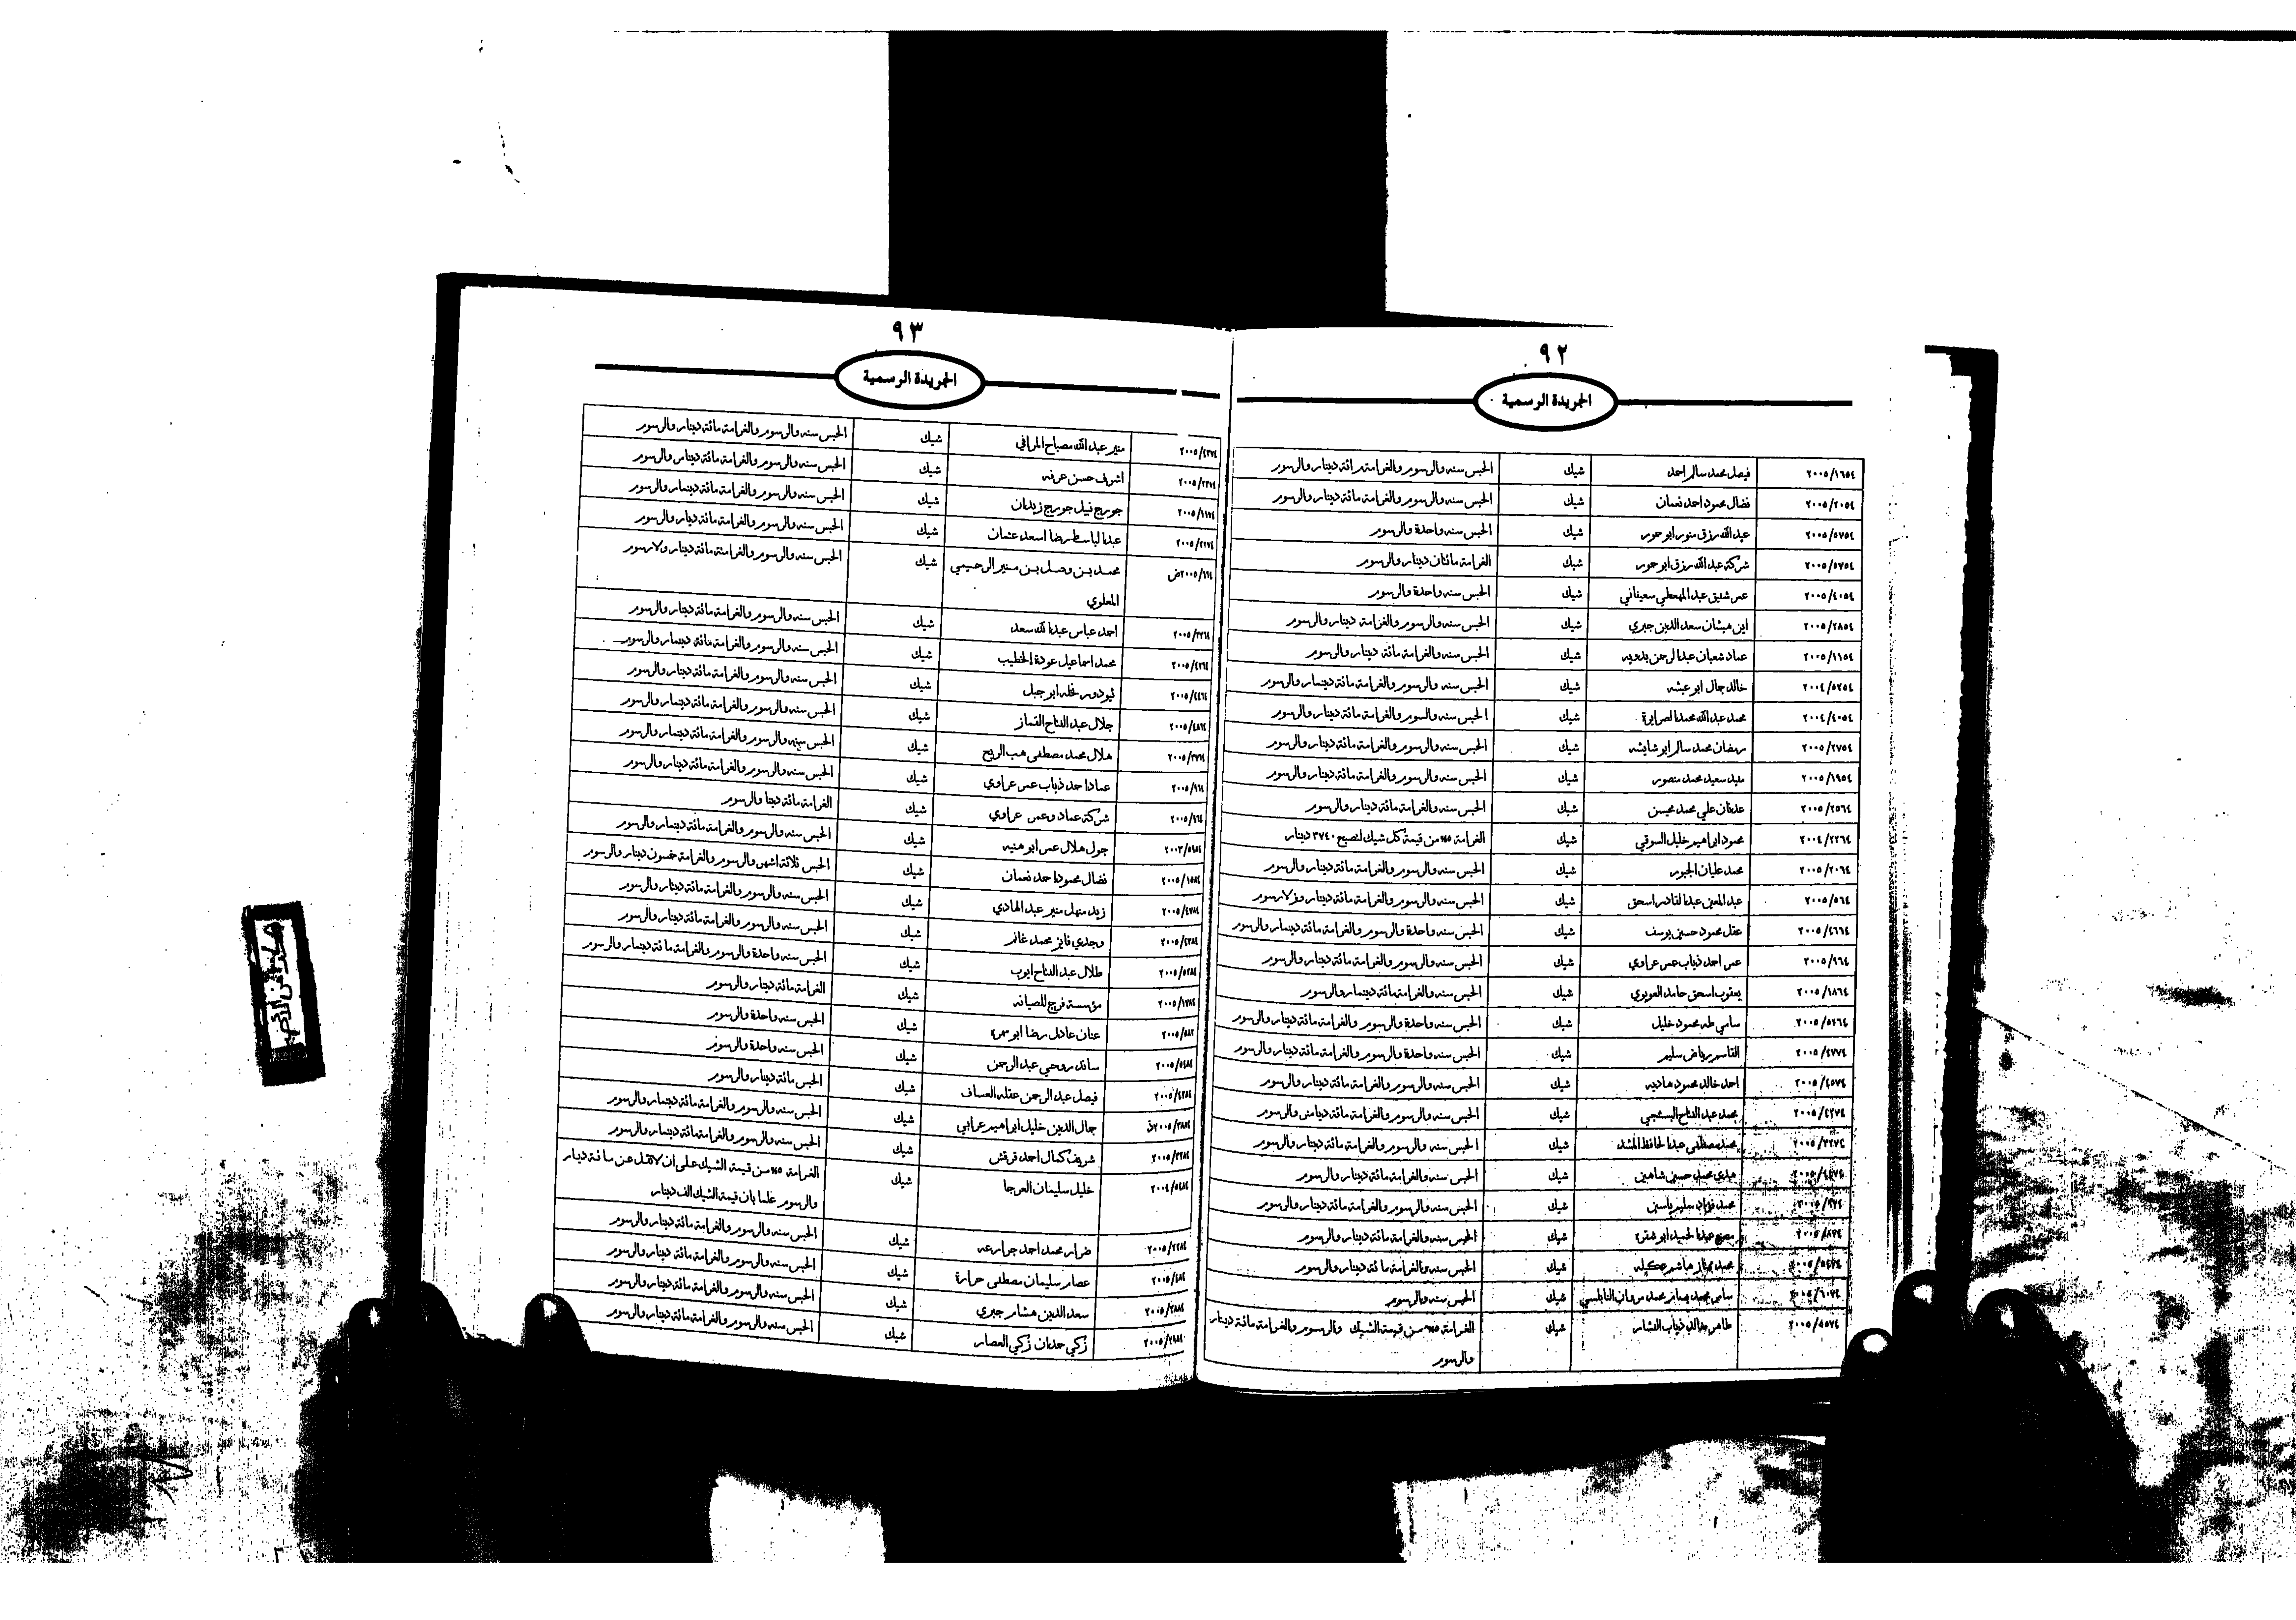 ٩٢
الجريدة الرسمية
٢٠٠٥/١٦٥٤ فيصل محمد سالم احمد شيك الحبس سنه والرسوم والغرامة مائة دينار والرسوم
٢٠٠٥/٢٠٥٤ نضال محمود احمد نعمان شيك الحبس سنه والرسوم والغرامة مائة دينار والرسوم
٢٠٠٥/٥٧٥٤ عبدالله رزق منور ابو حمور شيك الحبس سنه واحدة والرسوم
٢٠٠٥/٥٧٥٤ شركة عبدالله رزق ابو حمور شيك الغرامة مائتان دينار والرسوم
٢٠٠٥/٤٠٥٤ عمر شفيق عبدالمعطي سعيفاني شيك الحبس سنه واحدة والرسوم
٢٠٠٥/٢٨٥٤ سعدالدين جبري شيك الحبس سنه والرسوم والغرامة دينار والرسوم
٢٠٠٥/١١٥٤ عماد شعبان عبدالرحمن بدويه شيك الحبس سنه والغرامة مائة دينار والرسوم
٢٠٠٤/٥٢٥٤ خالد جمال ابو عيشه شيك الحبس سنه والرسوم والغرامة مائة دينار والرسوم
٢٠٠٤/٤٠٥٤ محمد عبدالله محمد الصرايرة شيك الحبس سنه والرسوم والغرامة مائة دينار والرسوم
٢٠٠٥/٢٧٥٤ رمضان محمد سالم ابو شايشه شيك الحبس سنه والرسوم والغرامة مائة دينار والرسوم
٢٠٠٥/١٩٥٤ مفيد سعيد محمد منصور شيك الحبس سنه والرسوم والغرامة مائة دينار والرسوم
٢٠٠٥/٢٥٦٤ عدنان علي محمد محيسن شيك الحبس سنه والغرامة مائة دينار والرسوم
٢٠٠٤/٢٢٦٤ محمود ابراهيم خليل السوقي شيك الغرامة ٥% من قيمة كل شيك لتصبح ٣٧٤٠ دينار
٢٠٠٥/٢٠٦٤ محمد عليان الجبور شيك الحبس سنه والرسوم والغرامة مائة دينار والرسوم
٢٠٠٥/٥٦٤ عبدالمعين عبدالقادر اسحق شيك الحبس سنه والرسوم والغرامة مائة دينار
٢٠٠٥/٤٦٦٤ عقل محمود حسين يوسف شيك الحبس سنه واحدة والرسوم والغرامة مائة دينار والرسوم
٢٠٠٥/٩٦٤ عمر احمد ذياب عمر عراوي شيك الحبس سنه والرسوم والغرامة مائة دينار والرسوم
٢٠٠٥/١٨٦٤ يعقوب اسحق حامد العويوي شيك الحبس سنه والغرامة مائة دينار والرسوم
٢٠٠٥/٥٢٦٤ سامي طه محمود خليل شيك الحبس سنه واحدة والرسوم والغرامة مائة دينار والرسوم
٢٠٠٥/٤٧٧٤ القاسم رياض سليم شيك الحبس سنه واحدة والرسوم والغرامة مائة دينار والرسوم
٢٠٠٥/٤٥٧٤ احمد خالد محمود هاديه شيك الحبس سنه والرسوم والغرامة مائة دينار والرسوم
٢٠٠٥/٤٢٧٤ محمد عبدالفتاح البسنجي شيك الحبس سنه والرسوم والغرامة مائة دينار والرسوم
محمد مصطفى عبدالحافظ شيك الحبس سنه والرسوم والغرامة مائة دينار والرسوم
محمد حسين شاهين شيك الحبس سنه والغرامة مائة دينار والرسوم
محمد سليم ياسين شيك الحبس سنه والرسوم والغرامة مائة دينار والرسوم
عبدالحميد ابو شيك الحبس سنه والغرامة مائة دينار والرسوم
محمد شيك الحبس سنه والغرامة مائة دينار والرسوم
محمد مروان النابلسي شيك الحبس سنه والرسوم
٢٠٠٥/٥٥٧٤ طاهر خالد ذياب النشار شيك الغرامة ٥% من قيمة الشيك والرسوم والغرامة مائة دينار
والرسوم
٩٣
الجريدة الرسمية
منير عبدالله مصباح المرافي شيك الحبس سنه والرسوم والغرامة مائة دينار والرسوم
اشرف حسن عرفه شيك الحبس سنه والرسوم والغرامة مائة دينار والرسوم
جورج نبيل جورج زيدان شيك الحبس سنه والرسوم والغرامة مائة دينار والرسوم
عبدالباسط رضا اسعد عثمان شيك الحبس سنه والرسوم والغرامة مائة دينار والرسوم
محمد بن وصل بن منير الرحيمي شيك الحبس سنه والرسوم والغرامة مائة دينار
المعلوي
احمد عباس عبدالله سعد شيك الحبس سنه والرسوم والغرامة مائة دينار والرسوم
محمد اسماعيل عودة الخطيب شيك الحبس سنه والرسوم والغرامة مائة دينار والرسوم
ثيودور نخله ابو جبل شيك الحبس سنه والرسوم والغرامة مائة دينار والرسوم
جلال عبدالفتاح القماز شيك الحبس سنه والرسوم والغرامة مائة دينار والرسوم
هلال محمد مصطفى هب الريح شيك الحبس سنه والرسوم والغرامة مائة دينار والرسوم
٢٠٠٥/٩٦٤ عماد احمد ذياب عمر عراوي شيك الحبس سنه والرسوم والغرامة مائة دينار والرسوم
٢٠٠٥/٩٦٤ شركة عماد وعمر عراوي شيك الغرامة مائة دينار والرسوم
جول هلال عمر ابو هنيه شيك الحبس سنه والرسوم والغرامة مائة دينار والرسوم
٢٠٠٥/١٥٨٤ نضال محمود احمد نعمان شيك الحبس ثلاثة اشهر والرسوم والغرامة خمسون دينار والرسوم
٢٠٠٥/٤٧٨٤ زيد منهل منير عبدالهادي شيك الحبس سنه والرسوم والغرامة مائة دينار والرسوم
وجدي فايز محمد غانم شيك الحبس سنه والرسوم والغرامة مائة دينار والرسوم
طلال عبدالفتاح ايوب شيك الحبس سنه واحدة والرسوم والغرامة مائة دينار والرسوم
٢٠٠٥/١٧٨٤ مؤسسة فرج للصيانه شيك الغرامة مائة دينار والرسوم
عنان عادل رضا ابو سمرة شيك الحبس سنه واحدة والرسوم
سائد روحي عبدالرحمن شيك الحبس سنه واحدة والرسوم
فيصل عبدالرحمن عقله العساف شيك الحبس مائة دينار والرسوم
جمال الدين خليل ابراهيم عرابي شيك الحبس سنه والرسوم والغرامة مائة دينار والرسوم
شريف كمال احمد قرقش شيك الحبس سنه والرسوم والغرامة مائة دينار والرسوم
خليل سليمان العرجا شيك الغرامة ٥% من قيمة الشيك على ان لا تقل عن مائة دينار
والرسوم علما بان قيمة الشيك الف دينار
ضرار محمد احمد جوارعه شيك الحبس سنه والرسوم والغرامة مائة دينار والرسوم
عصام سليمان مصطفى حرارة شيك الحبس سنه والرسوم والغرامة مائة دينار والرسوم
سعدالدين هشام جبري شيك الحبس سنه والرسوم والغرامة مائة دينار والرسوم
زكي حمدان زكي العصار شيك الحبس سنه والرسوم والغرامة مائة دينار والرسوم